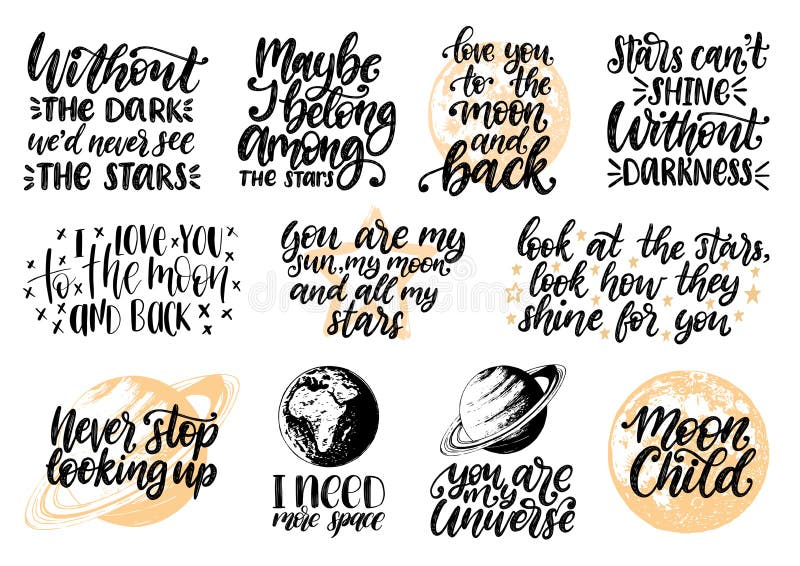 Without
THE DARK
we'd never see
THE STARS
Maybe
I belong
Among
THE STARS
love you
to the
moon
and
back
Stars can't
SHINE
Without
DARKNESS
I LOVE YOU
to the moon
AND BACK
you are my
sun, my moon,
and all my
stars
look at the stars,
look how they
shine for you
Never stop
looking up
I NEED
more space
you are
my
Universe
Moon
Child
dreamstime